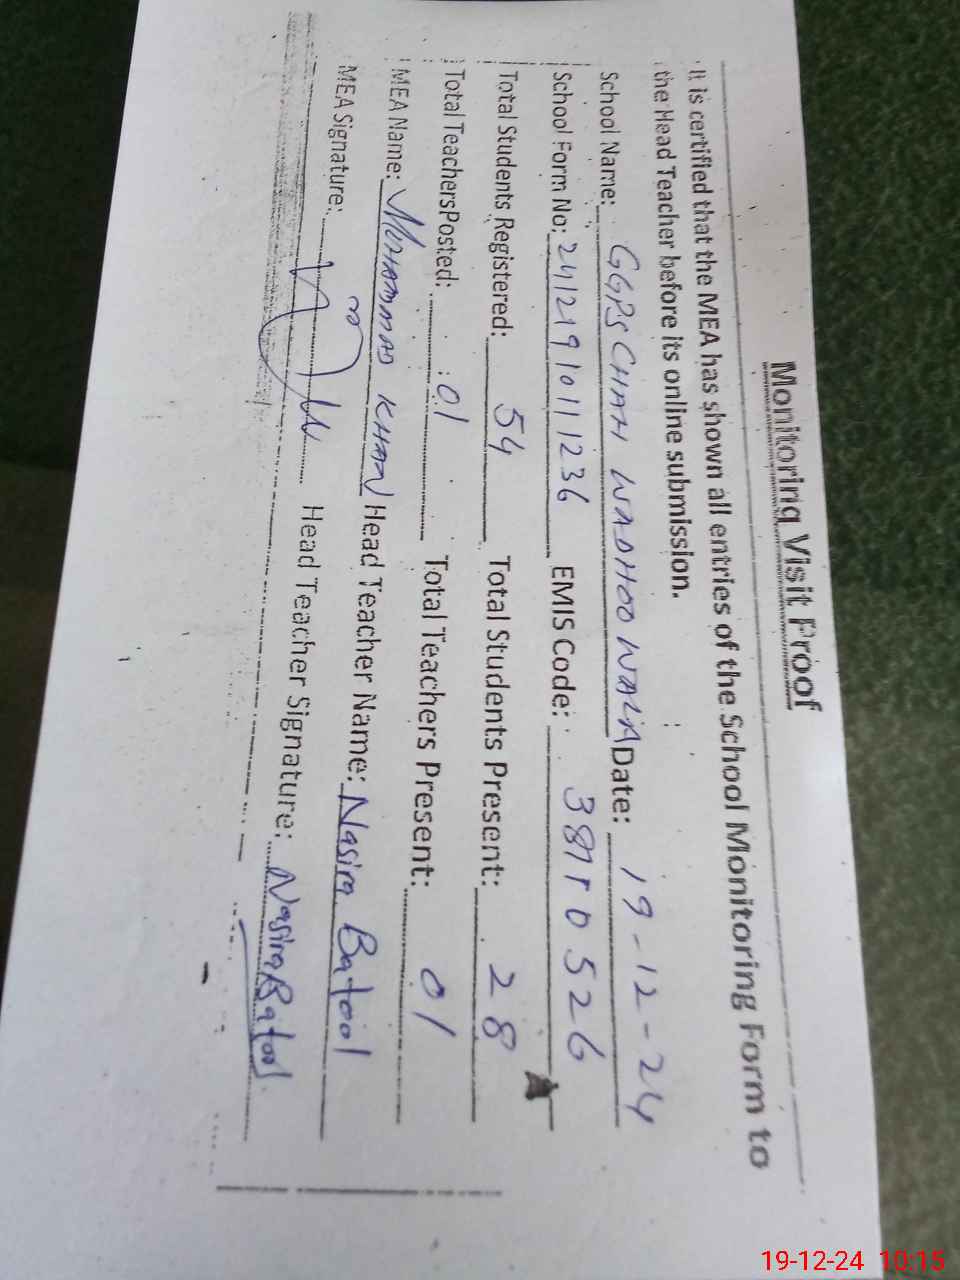 Monitoring Visit Proof
It is certified that the MEA has shown all entries of the School Monitoring Form to
the Head Teacher before its online submission.
School Name: GGPS CHAH WADHOO WALA Date: 19-12-24
School Form No: 24121910111236 EMIS Code: 38710526
Total Students Registered: 54 Total Students Present: 28
Total TeachersPosted: 01 Total Teachers Present: 01
MEA Name: MUHAMMAD KHAN Head Teacher Name: Nasira Batool
MEA Signature: Head Teacher Signature: Nasira Batool
19-12-24 10:15